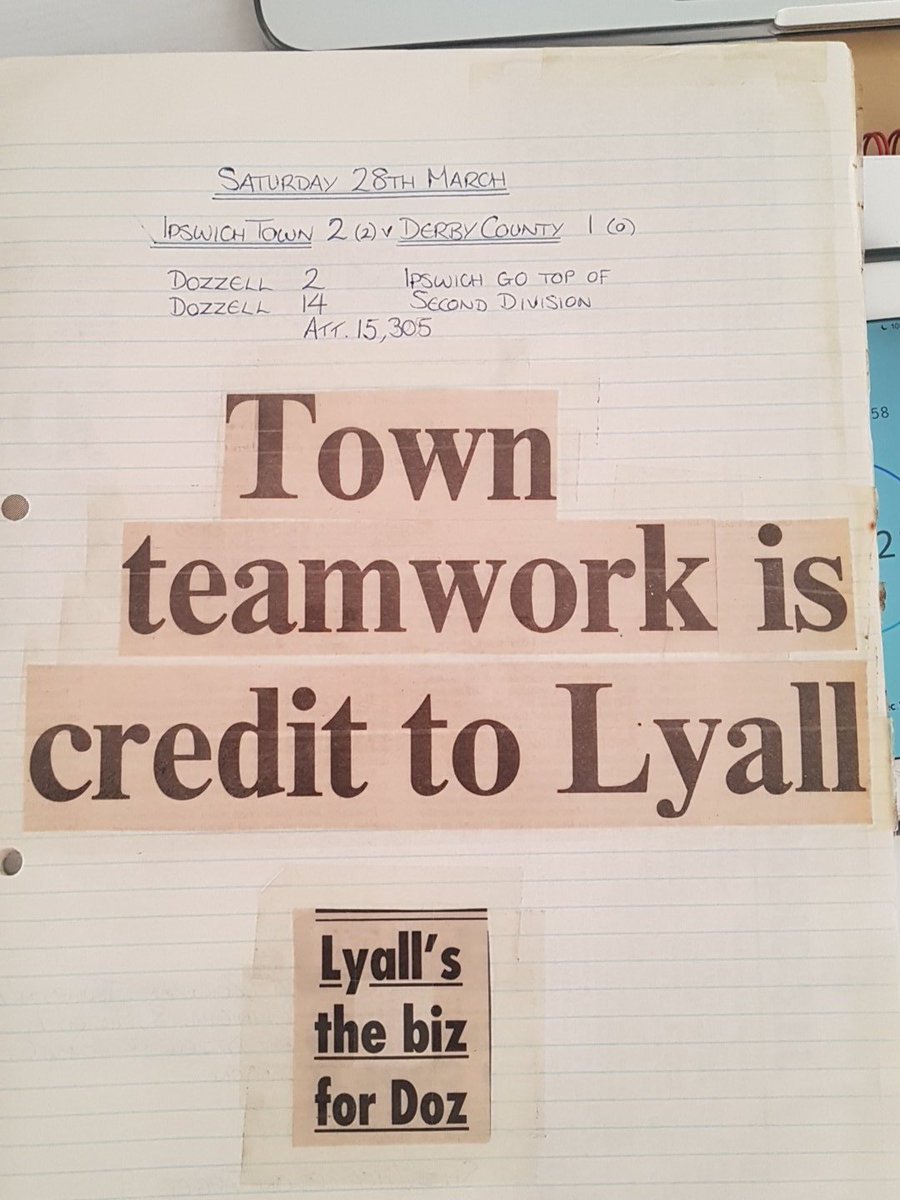 SATURDAY 28TH MARCH
IPSWICH TOWN 2 (2) V DERBY COUNTY 1 (0)
DOZZELL 2 IPSWICH GO TOP OF
DOZZELL 14 SECOND DIVISION
ATT. 15,305
Town
teamwork is
credit to Lyall
Lyall's
the biz
for Doz
58
2